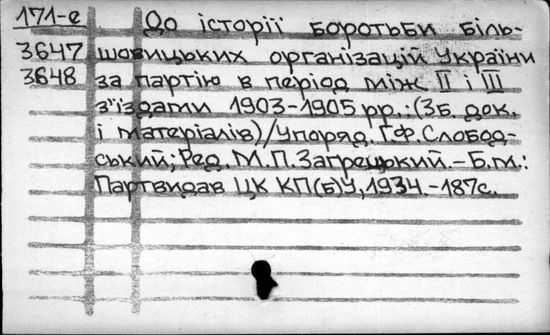 171-е До історії боротьби біль-
3647 шовицьких організацій України
3648 за партію в період між II і III
з'їздами 1903-1905 рр.: (Зб. док.
і матеріалів)/Упоряд. Г.Ф.Слобод-
ський; Ред. М.П.Загрецький.-Б.м.:
Партвидав ЦК КП(б)У, 1934.-187с.